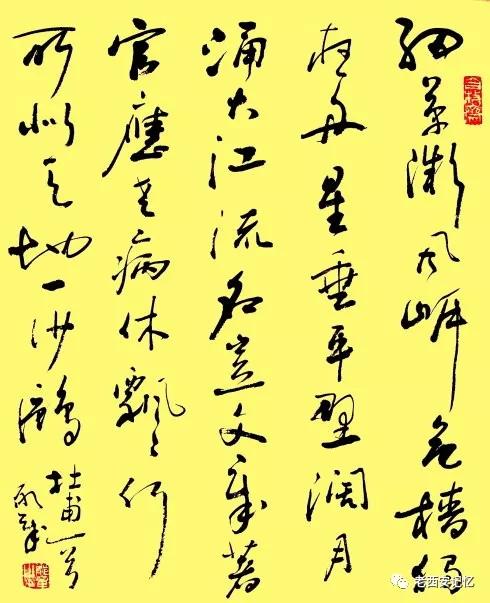 细草微风岸危樯独
夜舟星垂平野阔月
涌大江流名岂文章著
官應老病休飄飄何
所似天地一沙鷗
杜甫一首
老西安记忆